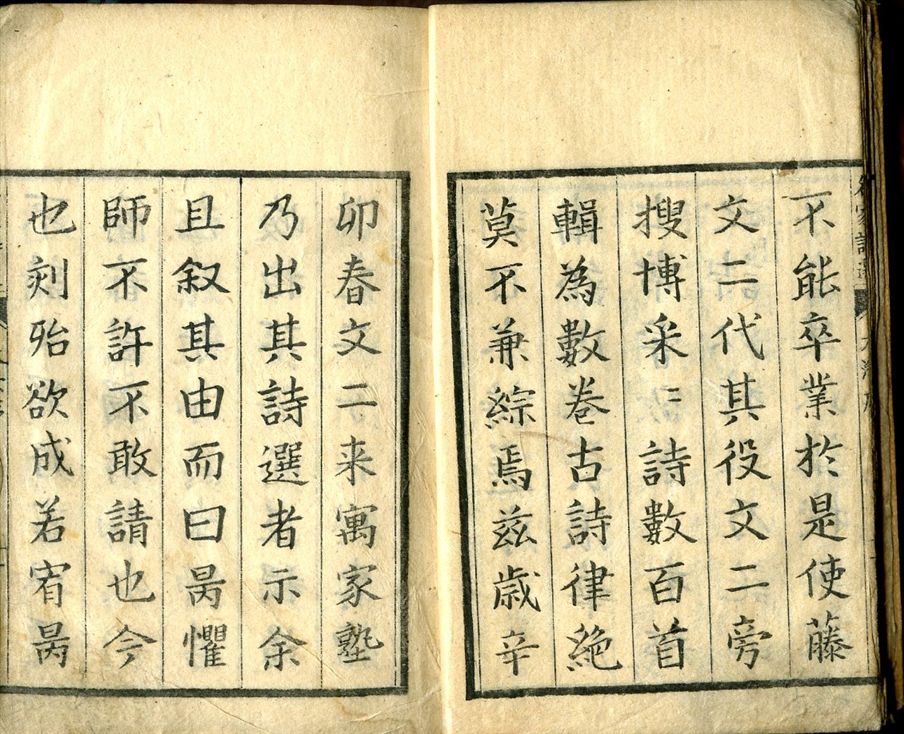 不能卒業於是使藤
文二代其役文二旁
搜博采〻詩數百首
輯為數卷古詩律絶
莫不兼綜焉茲歳辛
卯春文二来寓家塾
乃出其詩選者示余
且叙其由而曰昺懼
師不許不敢請也今
也刻殆欲成若宥昺